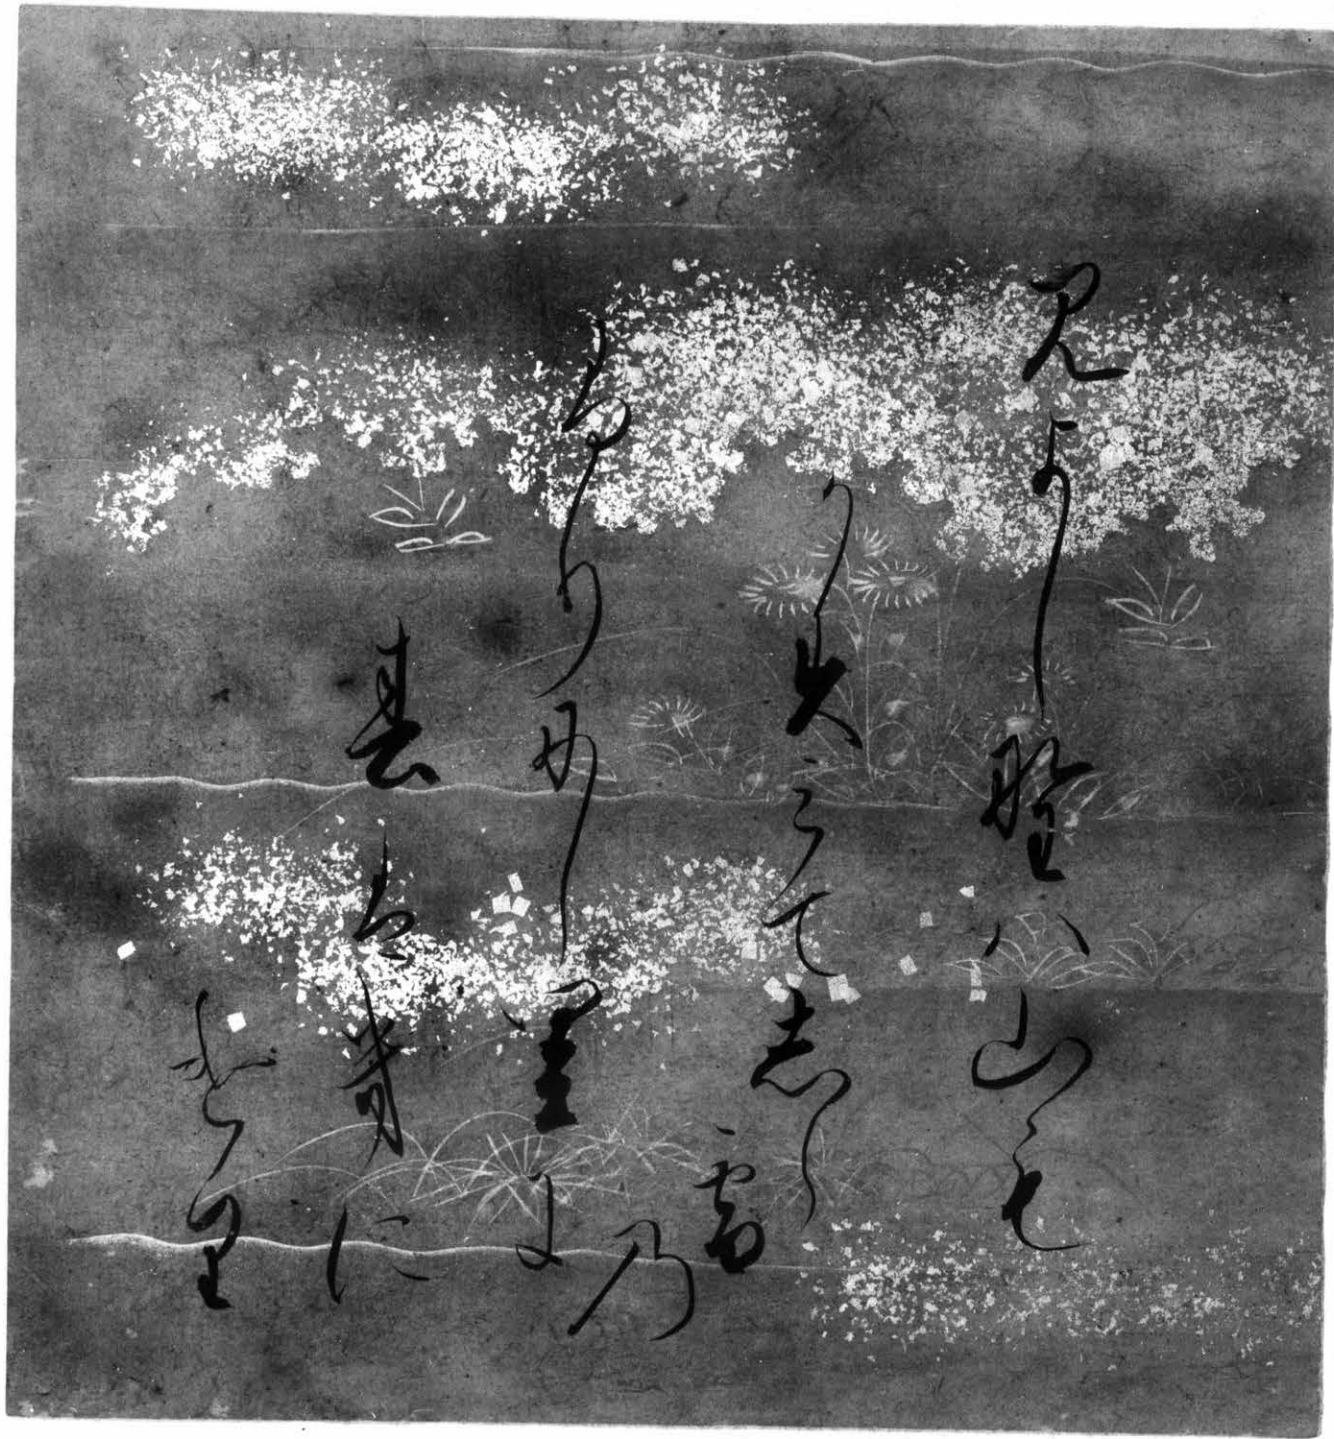 見よし野ハ山も
かすミて志ら
雪乃
ふりにし里に
春はきに
けり